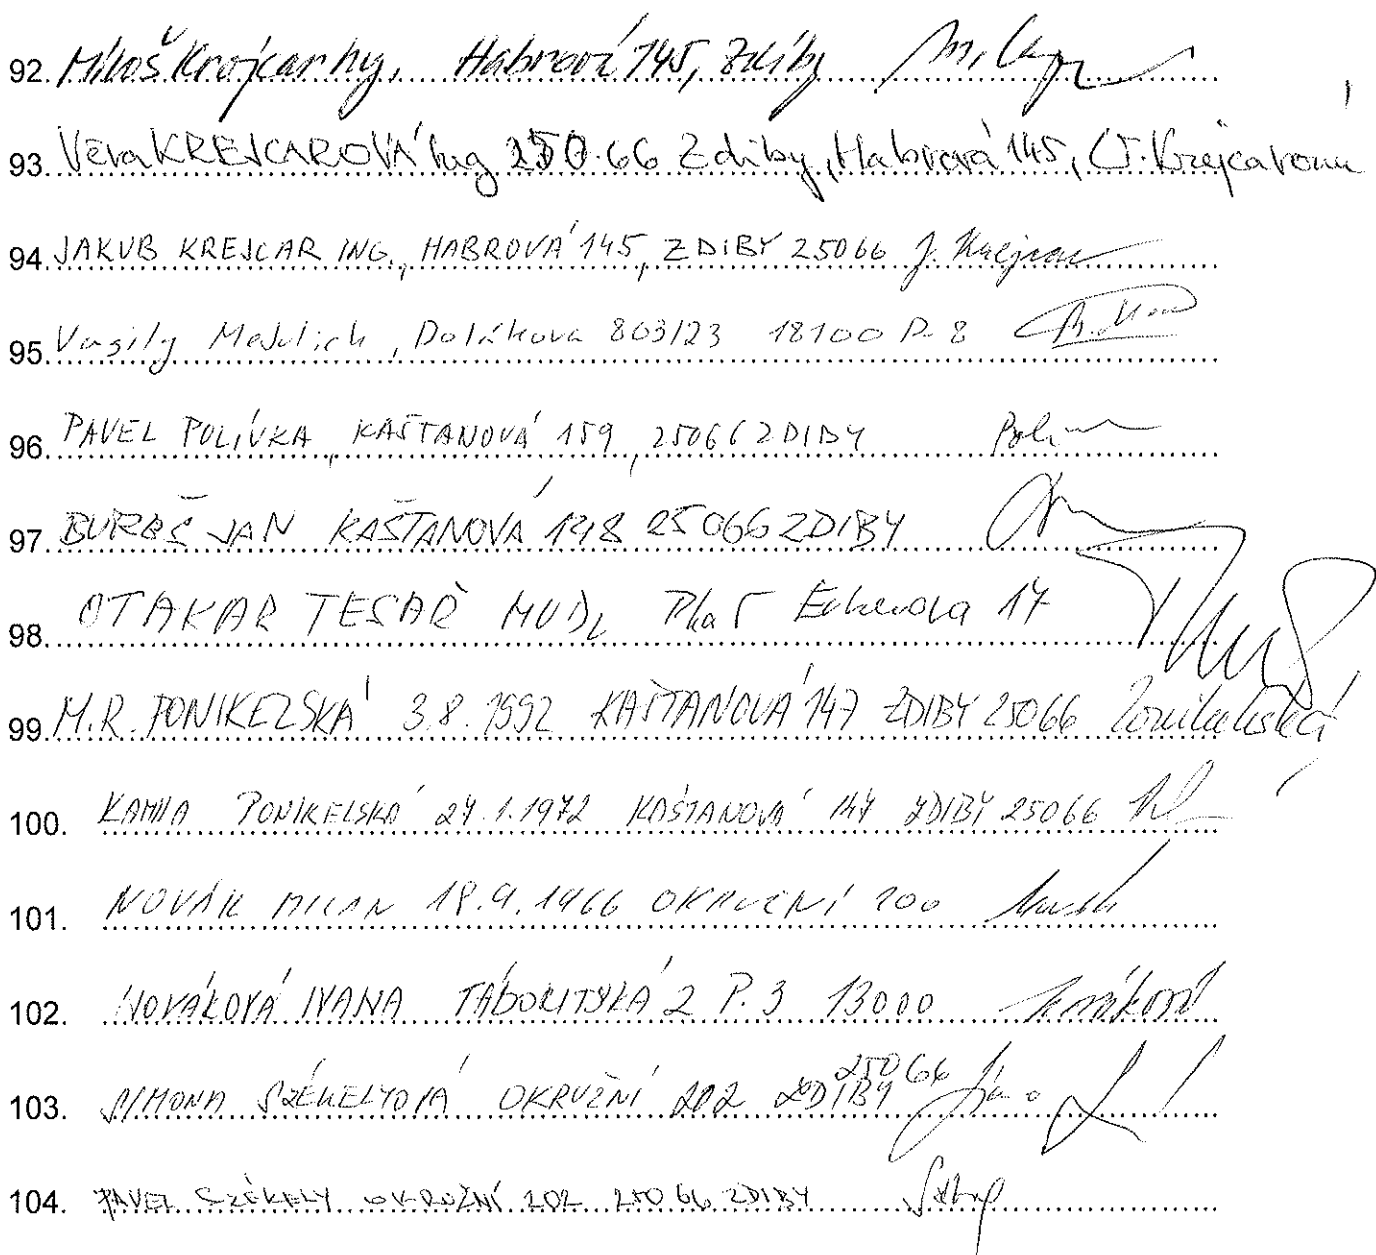 92. Miloš Krejcar Ing., Habrová 145, Zdiby
93. Věra KREJCAROVÁ Ing 250 66 Zdiby, Habrová 145, V. Krejcarová
94. JAKUB KREJCAR ING., HABROVÁ 145, ZDIBY 25066 J. Krejcar
95. Vasily Dolákova 803/23 18100 P. 8
96. PAVEL POLÍVKA, KAŠTANOVÁ 159, 25066 ZDIBY
97. BUREŠ JAN KAŠTANOVÁ 25066 ZDIBY
98. OTAKAR TESAŘ 17
99. M.R. PONIKELSKÁ 3.8.1992 KAŠTANOVÁ 147 ZDIBY 25066 Ponikelská
100. KAMILA PONIKELSKÁ 27.1.1972 KAŠTANOVÁ 147 ZDIBY 25066
101. NOVÁK MILAN 18.9.1966 OKRUŽNÍ 200
102. NOVÁKOVÁ IVANA TÁBORITSKÁ 2 P. 3 13000 Nováková
103. SIMONA SZÉKELYOVÁ OKRUŽNÍ 202 ZDIBY 25066
104. PAVEL SZÉKELY OKRUŽNÍ 202 250 66 ZDIBY